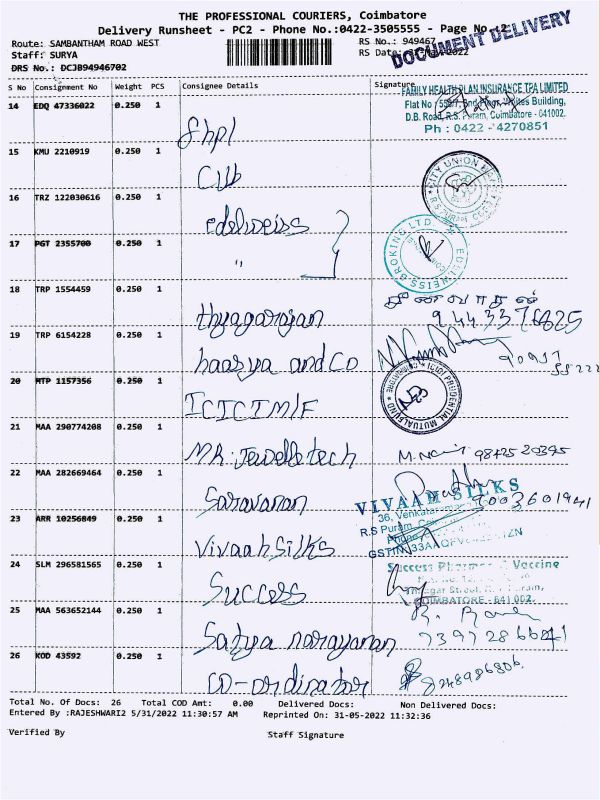 THE PROFESSIONAL COURIERS, Coimbatore
Delivery Runsheet - PC2 - Phone No.:0422-3505555 - Page No. 2
Route: SAMBANTHAM ROAD WEST
RS No.: 949467
Staff: SURYA
RS Date:
DOCUMENT DELIVERY
DRS No.: DCJB94946702
S No Consignment No Weight PCS Consignee Details Signature
FAMILY HEALTH PLAN INSURANCE TPA LIMITED
14 EDQ 47336022 0.250 1 fhpl
D.B. Road, R.S. Puram, Coimbatore - 641002.
Ph : 0422 - 4270851
15 KMU 2210919 0.250 1 CUB
CITY UNION
16 TRZ 122030616 0.250 1 edelweiss
EDELWEISS BROKING LTD
17 PGT 2355700 0.250 1 "
18 TRP 1554459 0.250 1 thyagarajan
19 TRP 6154228 0.250 1 haasya and Co
20 MTP 1157356 0.250 1 ICICI M/F
ICICI PRUDENTIAL MUTUAL FUND
21 MAA 290774208 0.250 1 MR. Jewells tech
22 MAA 282669464 0.250 1 Saravanan
9003601941
VIVAAH SILKS
36, Venkata
R.S Puram,
Phone
GSTIN: 33A
23 ARR 10256849 0.250 1 Vivaah Silks
24 SLM 296581565 0.250 1 Success
Success Vaccine
COIMBATORE - 641 002.
25 MAA 563652144 0.250 1 Satya narayanan
26 KOD 43592 0.250 1 CO-ordinator
8248986806.
Total No. Of Docs: 26 Total COD Amt: 0.00 Delivered Docs: Non Delivered Docs:
Entered By :RAJESHWARI2 5/31/2022 11:30:57 AM Reprinted On: 31-05-2022 11:32:36
Verified By Staff Signature